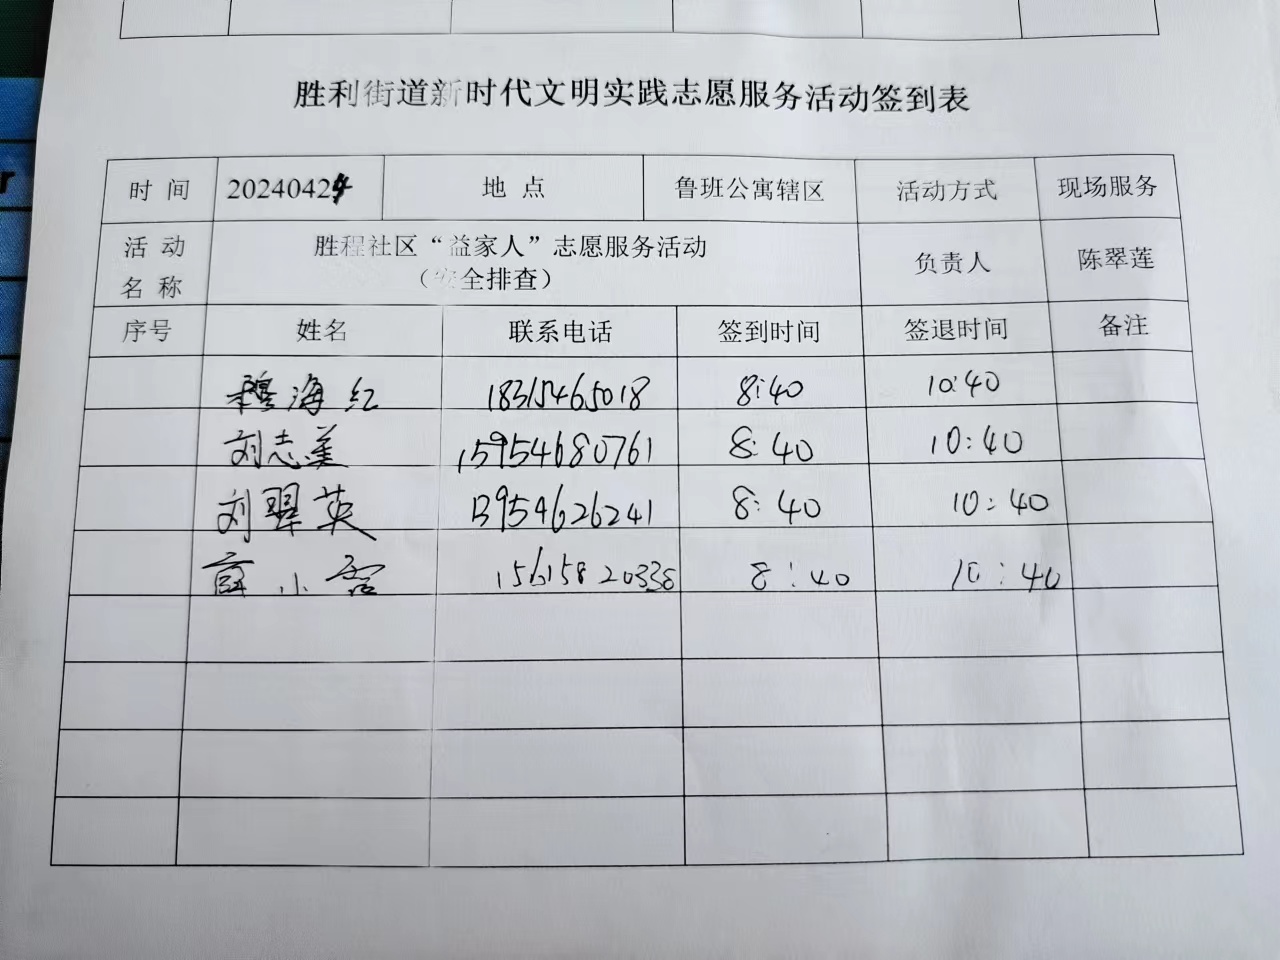 胜利街道新时代文明实践志愿服务活动签到表
时 间 20240424 地 点 鲁班公寓辖区 活动方式 现场服务
活 动 名 称 胜程社区“益家人”志愿服务活动 负责人 陈翠莲
（安全排查）
序号 姓名 联系电话 签到时间 签退时间 备注
穆海红 18315465018 8:40 10:40
刘志美 15954680761 8:40 10:40
刘翠英 13954626241 8:40 10:40
薛小露 15615820338 8:40 10:40